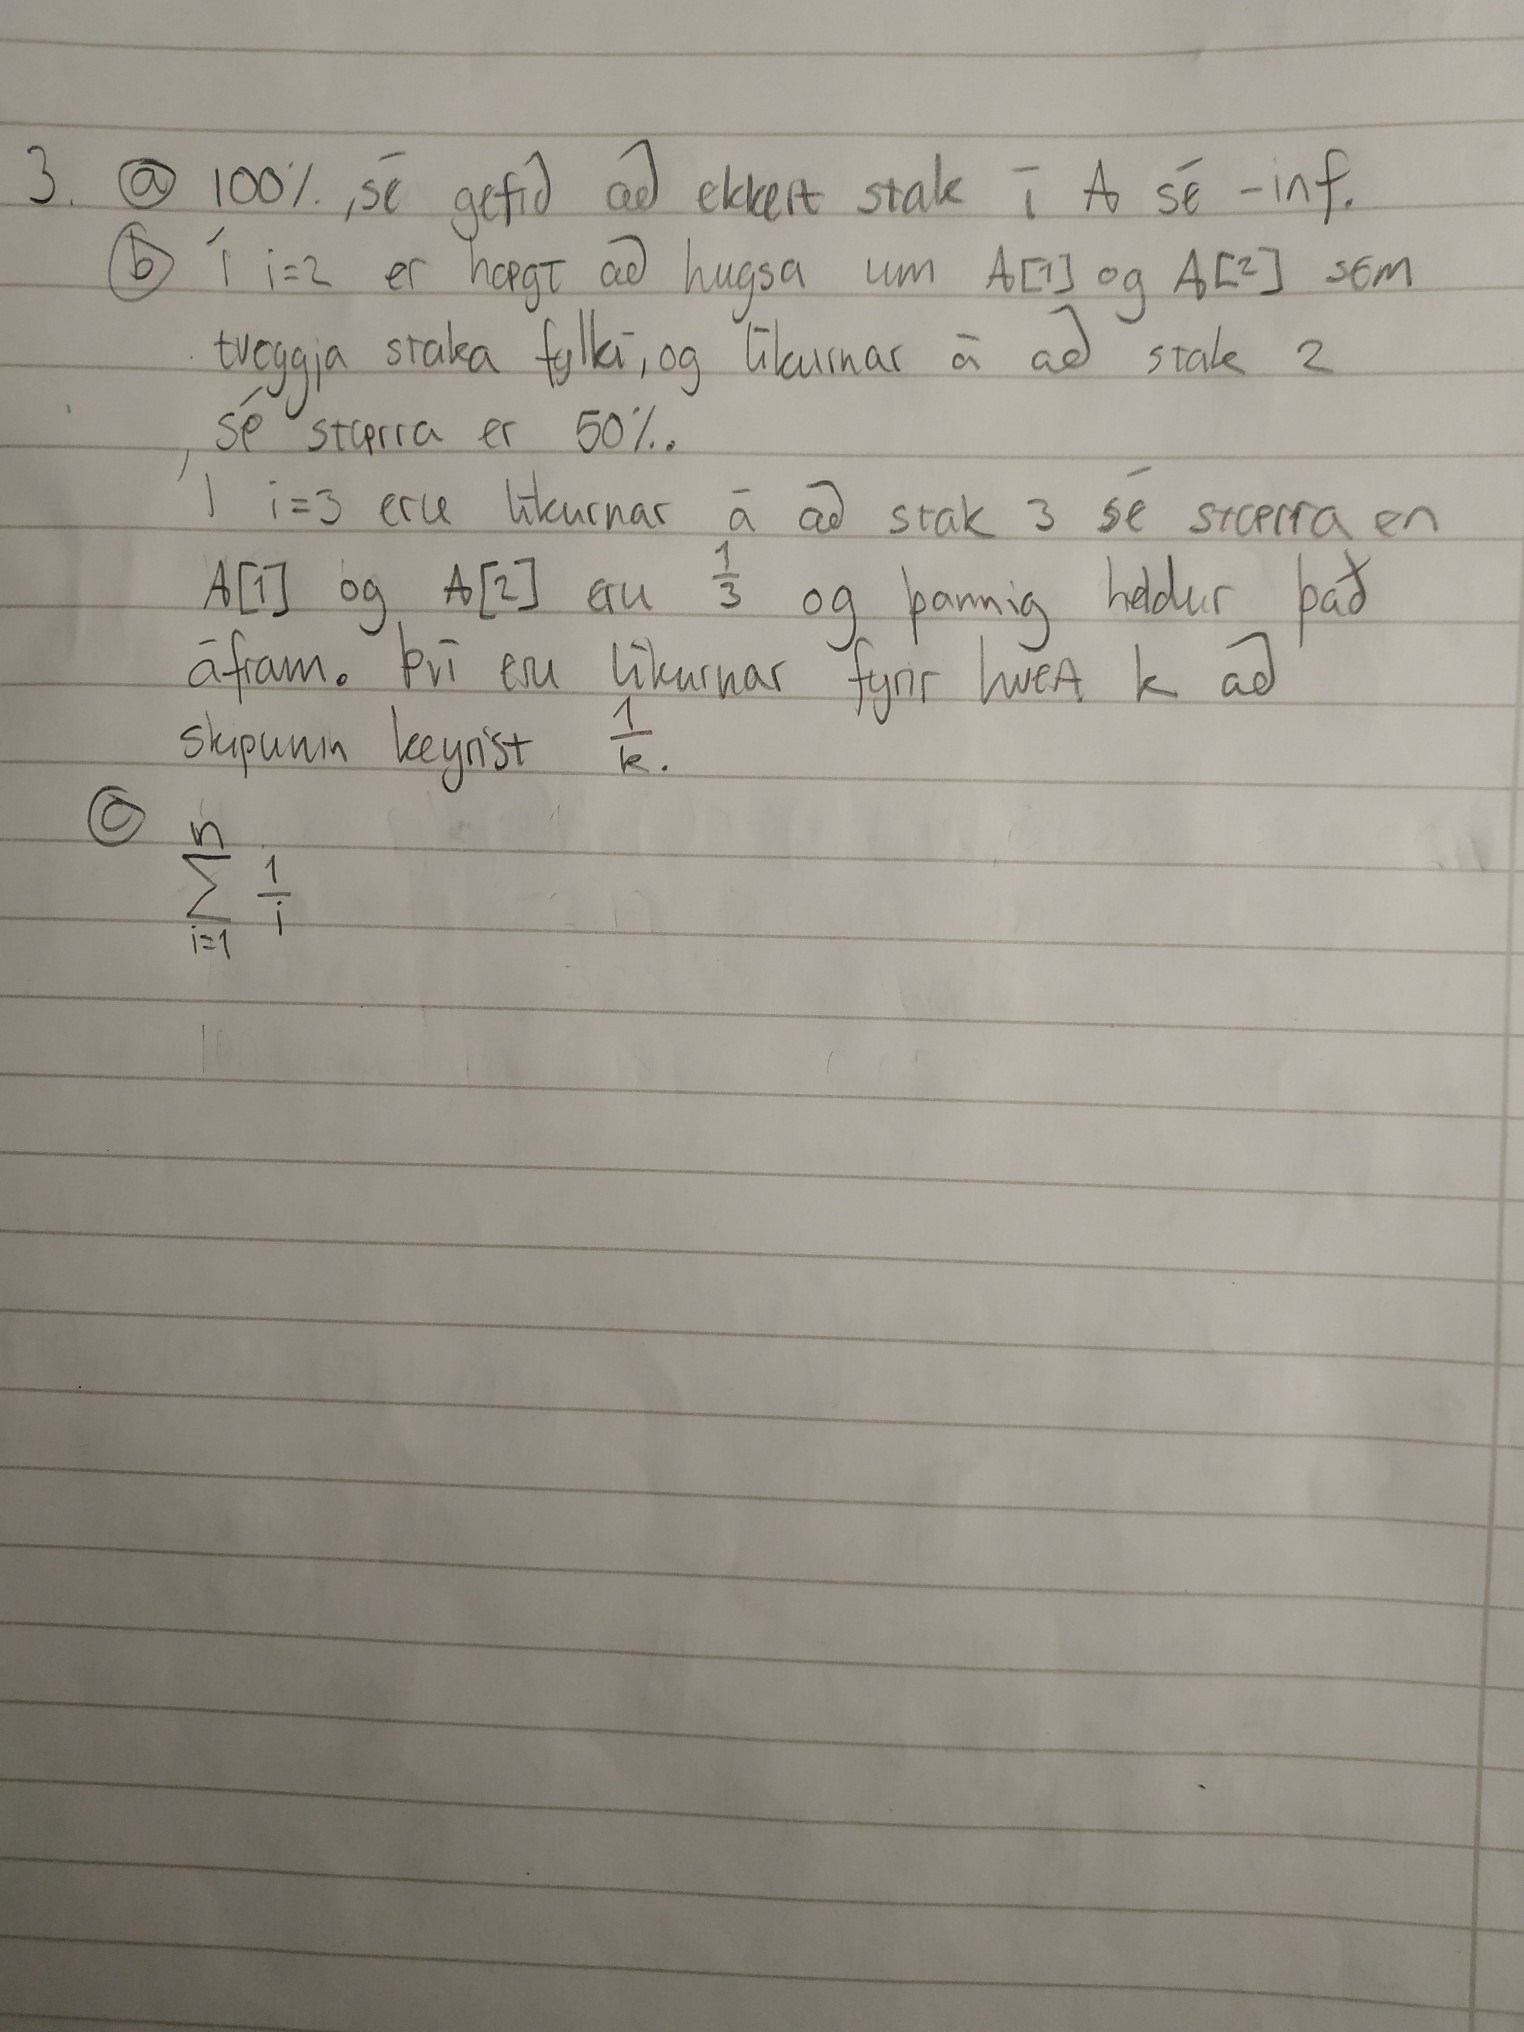 3. ⓐ 100%, sé gefið að ekkert stak í A sé -inf.
ⓑ Í i=2 er hægt að hugsa um A[1] og A[2] sem
tveggja staka fylki, og líkurnar á að stak 2
sé stærra er 50%.
Í i=3 eru líkurnar á að stak 3 sé stærra en
A[1] og A[2] eru 1/3 og þannig heldur það
áfram. Því eru líkurnar fyrir hvert k að
skipunin keyrist 1/k.
ⓒ n
∑ 1/i
i=1